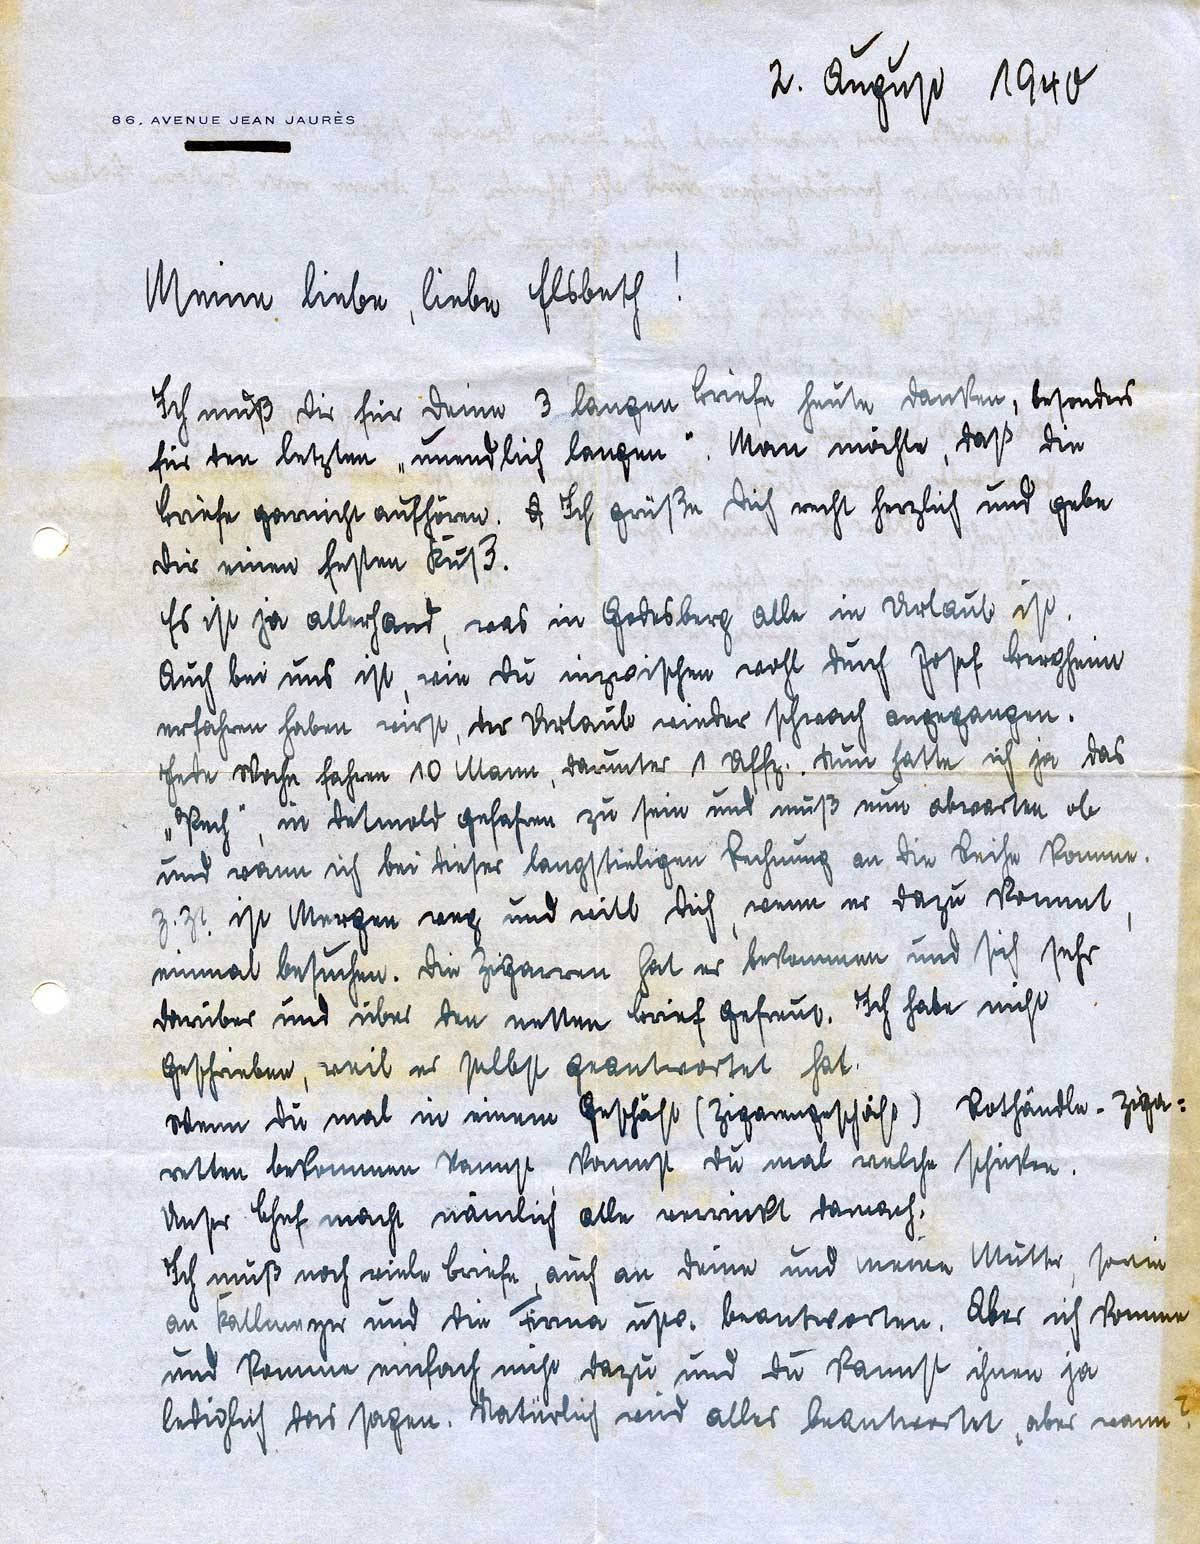 2. August 1940
86, AVENUE JEAN JAURÈS
Meine liebe, liebe Elsbeth!
Ich muß Dir für Deine 3 langen Briefe heute danken, besonders
für den letzten „unendlich langen". Man möchte, daß die
Briefe garnicht aufhören. Ich grüße Dich recht herzlich und gebe
Dir einen festen Kuß.
Es ist ja allerhand, was in Godesberg alle in Urlaub ist.
Auch bei uns ist, wie Du inzwischen wohl durch Josef Bergheim
erfahren haben wirst, der Urlaub wieder schwach angegangen.
Jede Woche fahren 10 Mann, darunter 1 Uffz.. Nun hatte ich ja das
„Pech", in Detmold gefahren zu sein und muß nun abwarten ob
und wann ich bei dieser langstieligen Rechnung an die Reihe komme.
Z. Zt. ist Mergen weg und will Dich, wenn er dazu kommt,
einmal besuchen. Die Zigarren hat er bekommen und sich sehr
darüber und über den netten Brief gefreut. Ich habe nicht
geschrieben, weil er selbst geantwortet hat.
Wenn Du mal in einem Geschäft (Zigarrengeschäft) Rothändle-Ziga=
retten bekommen kannst, kannst Du mal welche schicken.
Unser Chef macht nämlich alle verrückt danach.
Ich muß noch viele Briefe, auch an Deine und meine Mutter, sowie
an Kallmeyer und die Firma usw. beantworten. Aber ich komme
und komme einfach nicht dazu und Du kannst ihnen ja
lediglich das sagen. Natürlich wird alles beantwortet, aber wann?